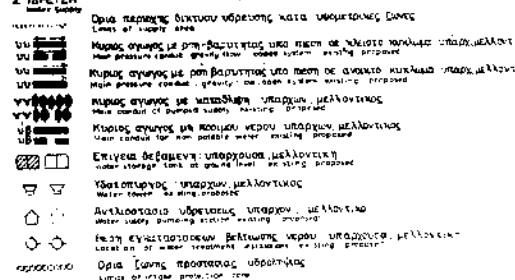 2 ΥΔΡΕΥΣΗ
Water Supply
Ορια περιοχης δικτυου υδρευσης κατα υψομετρικες ζωνες
Limits of supply area
Κυριος αγωγος με ροη βαρυτητας υπο πιεση σε κλειστο κυκλωμα υπαρχ, μελλοντ
Main pressure conduit gravity flow system existing proposed
Κυριος αγωγος με ροη βαρυτητας υπο πιεση σε ανοικτο κυκλωμα υπαρχ, μελλοντ
Main pressure conduit gravity open system existing proposed
Κυριος αγωγος με καταθλιψη υπαρχων, μελλοντικος
Main conduit of pumped supply existing proposed
Κυριος αγωγος μη ποσιμου νερου υπαρχων, μελλοντικος
Main conduit for non potable water existing proposed
Επιγεια δεξαμενη υπαρχουσα, μελλοντικη
Water storage tank at ground level existing proposed
Υδατοπυργος υπαρχων, μελλοντικος
Water tower existing, proposed
Αντλιοστασιο υδρευσεως υπαρχον, μελλοντικο
Water supply pumping station existing proposed
Θεση εγκαταστασεων βελτιωσης νερου υπαρχουσα, μελλοντικη
Location of water treatment existing proposed
Ορια ζωνης προστασιας υδροληψιας
Limits of intake protection zone